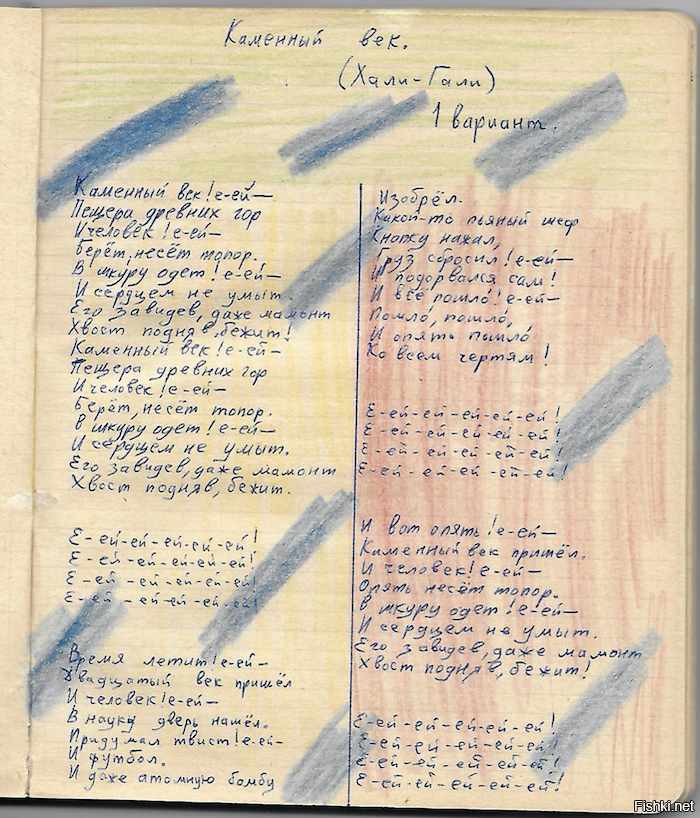 Каменный век.
(Хали-Гали)
1 вариант.
Каменный век! е-ей—
Пещера древних гор
И человек! е-ей—
Берёт, несёт топор.
В шкуру одет! е-ей—
И сердцем не умыт.
Его завидев, даже мамонт
Хвост подняв, бежит!
Каменный век! е-ей—
Пещера древних гор
И человек! е-ей—
Берёт, несёт топор.
В шкуру одет! е-ей—
И сердцем не умыт.
Его завидев, даже мамонт
Хвост подняв, бежит.
Е-ей-ей-ей-ей-ей!
Е-ей-ей-ей-ей-ей!
Е-ей-ей-ей-ей-ей!
Е-ей-ей-ей-ей-ей!
Время летит! е-ей—
Двадцатый век пришёл
И человек! е-ей—
В науку дверь нашёл.
Придумал твист! е-ей—
И футбол.
И даже атомную бомбу
Изобрёл.
Какой-то пьяный шеф
Кнопку нажал,
Груз сбросил! е-ей—
И подорвался сам!
И всё пошло! е-ей—
Пошло, пошло,
И опять пошло
Ко всем чертям!
Е-ей-ей-ей-ей-ей!
Е-ей-ей-ей-ей-ей!
Е-ей-ей-ей-ей-ей!
Е-ей-ей-ей-ей-ей!
И вот опять! е-ей—
Каменный век пришёл.
И человек! е-ей—
Опять несёт топор.
В шкуру одет! е-ей—
И сердцем не умыт.
Его завидев, даже мамонт
Хвост подняв, бежит!
Е-ей-ей-ей-ей-ей!
Е-ей-ей-ей-ей-ей!
Е-ей-ей-ей-ей-ей!
Е-ей-ей-ей-ей-ей!
Fishki.net